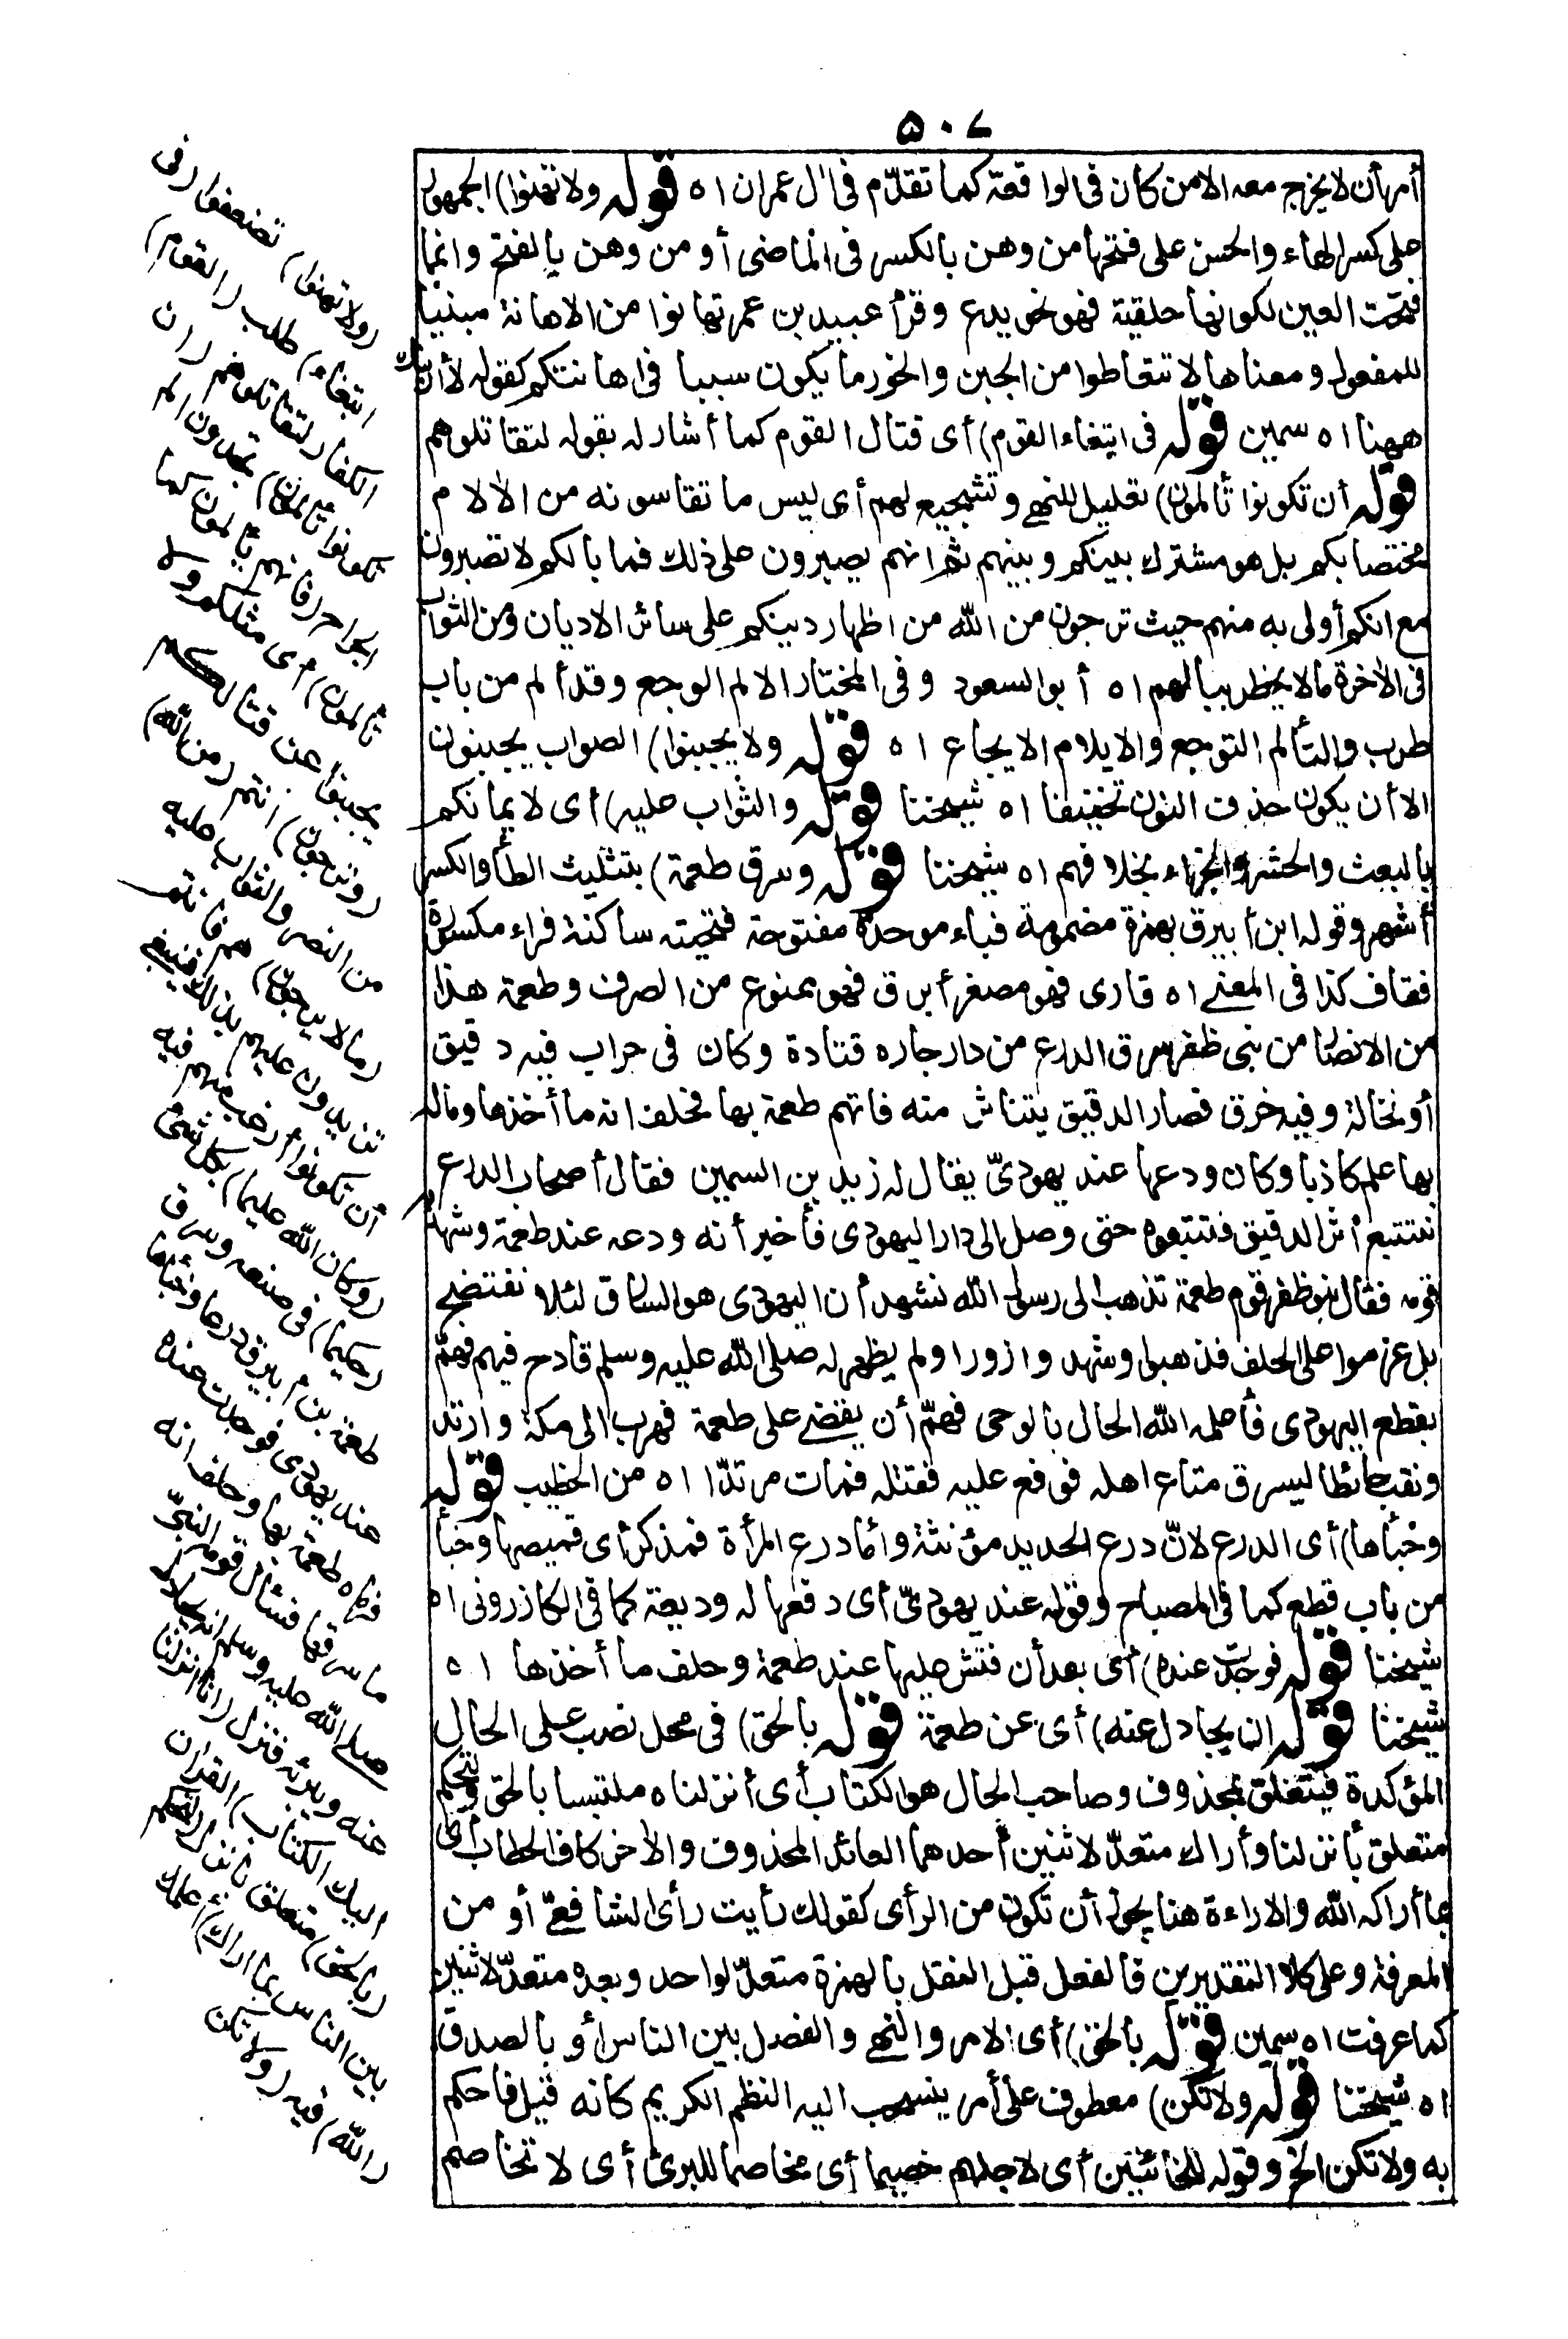 ٥٠٧
أمر أن لا يخرج معه الا من كان فى الواقعة كما تقدّم فى اٰل عمران اه قوله ولا تهنوا) الجمهور
على كسر الهاء والحسن على فتحها من وهن بالكسر فى الماضى أو من وهن بالفتح وانما
فتحت العين لكونها حلقية فهو نحو يدع وقرأ عبيد بن عمير تهانوا من الاهانة مبنيا
للمفعول ومعناها لا تتعاطوا من الجبن والخور ما يكون سببا فى اهانتكم كقوله لا أرينك
ههنا اه سمين قوله فى ابتغاء القوم) أى قتال القوم كما أشار له بقوله لتقاتلوهم
قوله أن تكونوا تألمون) تعليل للنهى وتشجيع لهم أى ليس ما تقاسونه من الاٰلام
مختصا بكم بل هو مشترك بينكم وبينهم ثم انهم يصبرون على ذلك فما بالكم لا تصبرون
مع انكم أولى به منهم حيث ترجون من الله من اظهار دينكم على سائر الاديان ومن الثواب
فى الاٰخرة ما لا يخطر ببالهم اه أبو السعود وفى المختار الالم الوجع وقد ألم من باب
طرب والتألم التوجع والايلام الايجاع اه قوله ولا يجبنوا) الصواب يجبنون
الا أن يكون حذف النون تخفيفا اه شيخنا قوله والثواب عليه) أى لايمانكم
بالبعث والحشر والجزاء بخلافهم اه شيخنا قوله وسرق طعمة) بتثليث الطأ والكسر
أشهر وقوله ابن أبيرق بهمزة مضمومة فباء موحدة مفتوحة فتحيته ساكنة فراء مكسورة
فقاف كذا فى المغنى اه قارى فهو مصغر أبرق فهو ممنوع من الصرف وطعمة هذا
من الانصار من بنى ظفر سرق الدرع من دار جاره قتادة وكان فى جراب فيه دقيق
أو نخالة وفيه خرق فصار الدقيق يتناثر منه فاتهم طعمة بها فحلف انه ما أخذها وماله
بها علم كاذبا وكان ودعها عند يهودىّ يقال له زيد بن السمين فقال أصحاب الدرع
نتتبع أثر الدقيق فتتبعوه حتى وصل الى دار اليهودى فأخبر أنه ودعه عند طعمة وشهد
قومه فقال بنو ظفر قوم طعمة تذهب الى رسول الله نشهد أن اليهودى هو السارق لئلا نفتضح
بل عزموا على الحلف فذهبوا وشهدوا زورا ولم يظهر له صلى الله عليه وسلم قادح فيهم فهمّ
بقطع اليهودى فأعلمه الله الحال بالوحى فهمّ أن يقضى على طعمة فهرب الى مكة وارتد
ونقب حائطا ليسرق متاع اهله فوقع عليه فقتله فمات مرتدّا اه من الخطيب قوله
وخبأها) أى الدرع لانّ درع الحديد مؤنثة وأما درع المرأة فمذكر أى قميصها وخبأ
من باب قطع كما فى المصباح وقوله عند يهودىّ أى دفعها له وديعة كما فى الكازرونى اه
شيخنا قوله فوجدت عنده) أى بعد أن فتش عليها عند طعمة وحلف ما أخذها اه
شيخنا قوله ان يجادل عنه) أى عن طعمة قوله بالحق) فى محل نصب على الحال
المؤكدة فيتعلق بمحذوف وصاحب الحال هو الكتاب أى أنزلناه ملتبسا بالحق ولتحكم
متعلق بأنزلنا وأراك متعدّ لاثنين أحدهما العائد المحذوف والاٰخر كاف الخطاب أى
بما أراكه الله والاراءة هنا يجوز أن تكون من الرأى كقولك رأيت رأى الشافعىّ أو من
المعرفة وعلى كلا التقديرين فالفعل قبل النقل بالهمزة متعدّ لواحد وبعده متعدّ لاثنين
كما عرفت اه سمين قوله بالحق) أى الامر والنهى والفصل بين الناس أو بالصدق
اه شيخنا قوله ولا تكن) معطوف على أمر ينسحب اليه النظم الكريم كانه قيل فاحكم
به ولا تكن الخ وقوله للخائنين أى لاجلهم خصيما أى مخاصما للبرئ أى لا تخاصم
(ولا تهنوا) تضعفوا (فى
ابتغاء) طلب (القوم)
الكفار لتقاتلوهم (ان
تكونوا تألمون) تجدون الم
الجراح (فانهم يألمون كما
تألمون) أى مثلكم ولا
يجبنوا عن قتالكم
(وترجون) انتم (من الله)
من النصر والثواب عليه
(ما لا يرجون) هم فانتم
تزيدون عليهم بذلك فينبغى
أن تكونوا أرغب منهم فيه
(وكان الله عليما) بكل شئ
(حكيما) فى صنعه وسرق
طعمة بن أبيرق درعا وخبأها
عند يهودى فوجدت عنده
فرماه طعمة بها وحلف انه
ما سرقها فسأل قومه النبىّ
صلى الله عليه وسلم ان يجادل
عنه ويبرئه فنزل (انا أنزلنا
اليك الكتاب) القرآن
(بالحق) متعلق بأنزل (لتحكم
بين الناس بما اراك) أعلمك
(الله) فيه (ولا تكن